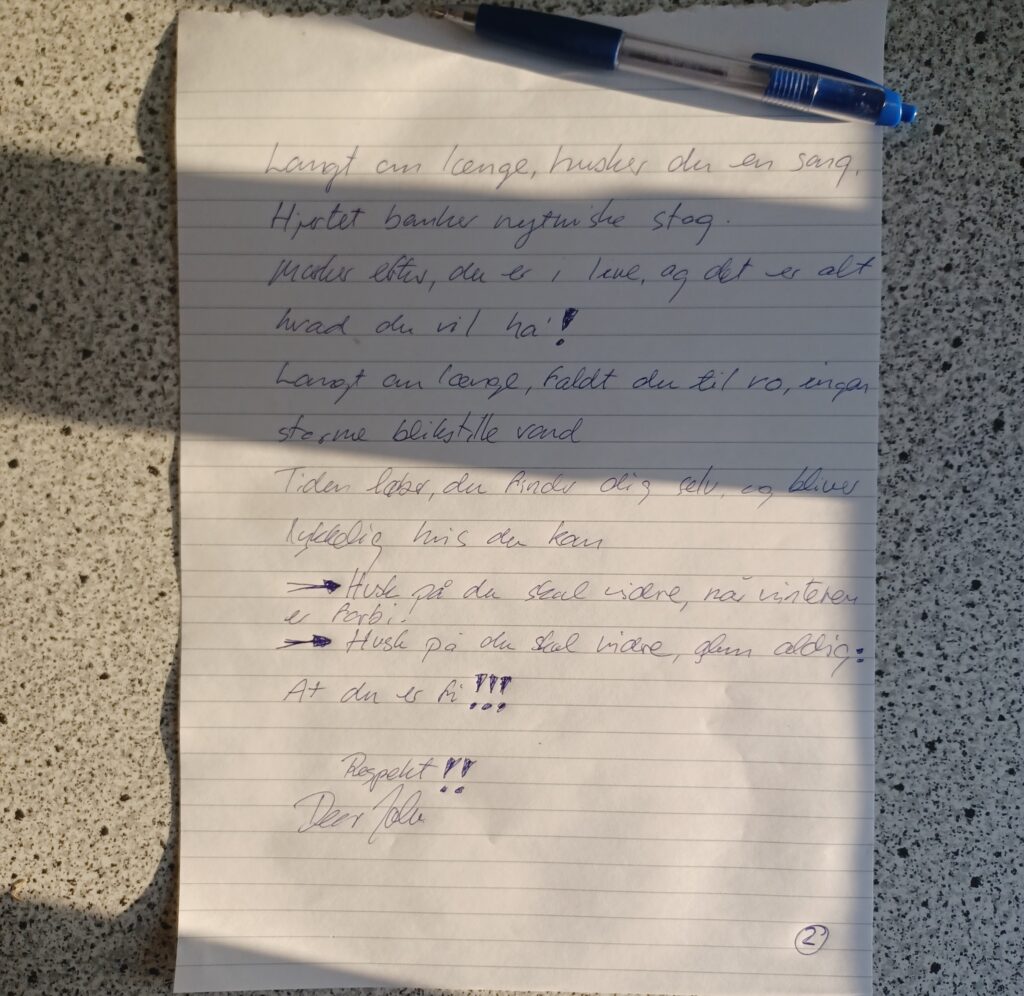 Langt om længe, husker du en sang.
Hjertet banker rytmiske slag.
Mærker efter, du er i live, og det er alt
hvad du vil ha'!
Langt om længe, faldt du til ro, ingen
storme blikstille vand
Tiden læber, du finder dig selv, og bliver
lykkelig hvis du kan
→ Husk på du skal videre, når vinteren
er forbi.
→ Husk på du skal videre, glem aldrig:
At du er fri!!!
Respekt!!
Deer John
2